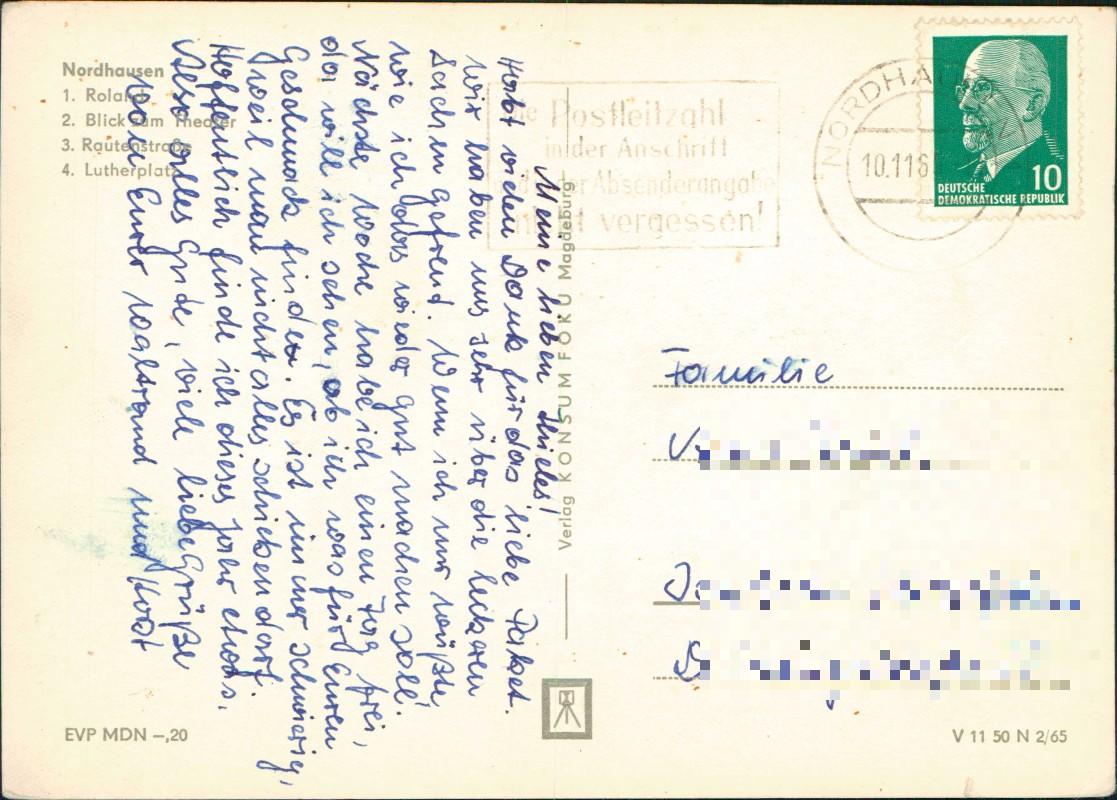 Nordhausen
1. Roland
2. Blick zum Theater
3. Rautenstraße
4. Lutherplatz
Meine lieben
Habt vielen Dank für das liebe Paket.
Wir haben uns sehr über die leckeren
Sachen gefreut. Wenn ich nur wüßte,
wie ich das wieder gut machen soll.
Nächste Woche habe ich einen Tag frei,
da will ich sehen, ob ich was für Euren
Geschmack finde. Es ist immer schwierig,
weil man nicht alles schicken darf.
Hoffentlich finde ich dieses Jahr etwas.
Also alles Gute, viele liebe Grüße
von Eurer und
Verlag KONSUM FOKU Magdeburg
Postleitzahl
in der Anschrift
der Absenderangabe
vergessen!
NORDHAUSEN
10.11.6
10
DEUTSCHE
DEMOKRATISCHE REPUBLIK
Familie
EVP MDN –,20
V 11 50 N 2/65